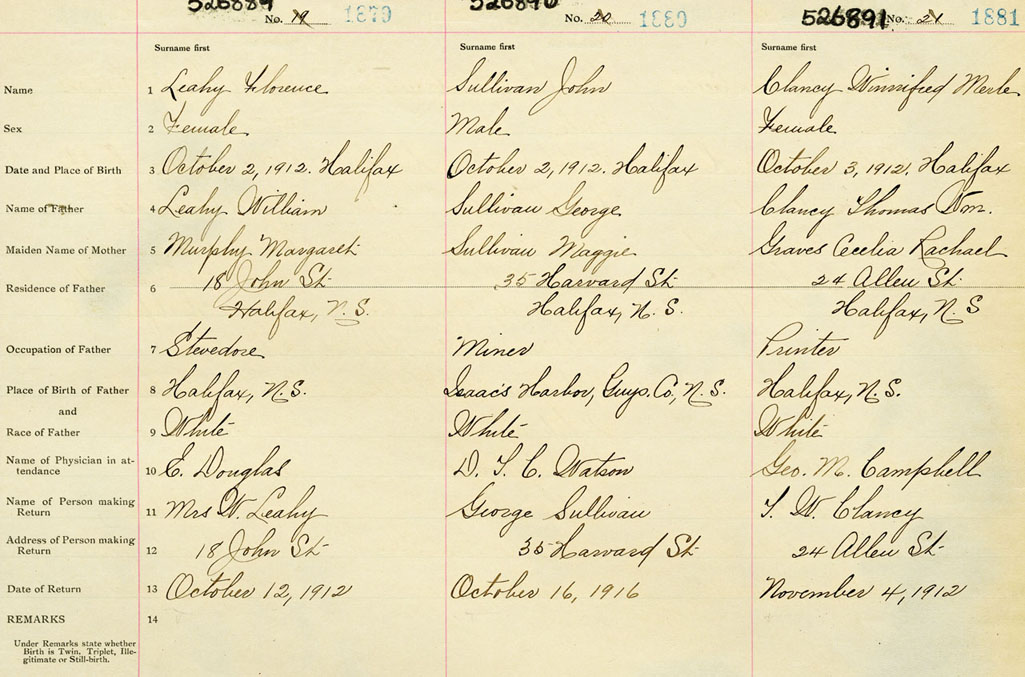 526889 No. 19 1879 526890 No. 20 1880 526891 No. 21 1881
Surname first Surname first Surname first
Name 1 Leahy Florence Sullivan John Clancy Winnifred Merle
Sex 2 Female Male Female
Date and Place of Birth 3 October 2, 1912. Halifax October 2, 1912. Halifax October 3, 1912. Halifax
Name of Father 4 Leahy William Sullivan George Clancy Thomas Wm.
Maiden Name of Mother 5 Murphy Margaret Sullivan Maggie Graves Cecelia Rachael
Residence of Father 6 18 John St. 35 Harvard St. 24 Allen St.
Halifax, N.S. Halifax, N.S. Halifax, N.S
Occupation of Father 7 Stevedore Miner Printer
Place of Birth of Father 8 Halifax, N.S. Isaac's Harbor, Guys. Co., N.S. Halifax, N.S.
and
Race of Father 9 White White White
Name of Physician in at-
tendance 10 E. Douglas D. T. C. Watson Geo. M. Campbell
Name of Person making
Return 11 Mrs W. Leahy George Sullivan T. W. Clancy
Address of Person making
Return 12 18 John St. 35 Harvard St. 24 Allen St.
Date of Return 13 October 12, 1912 October 16, 1916 November 4, 1912
REMARKS 14
Under Remarks state whether
Birth is Twin, Triplet, Ille-
gitimate or Still-birth.